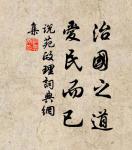 治國之道
愛民而已
說苑政理詞典網
集